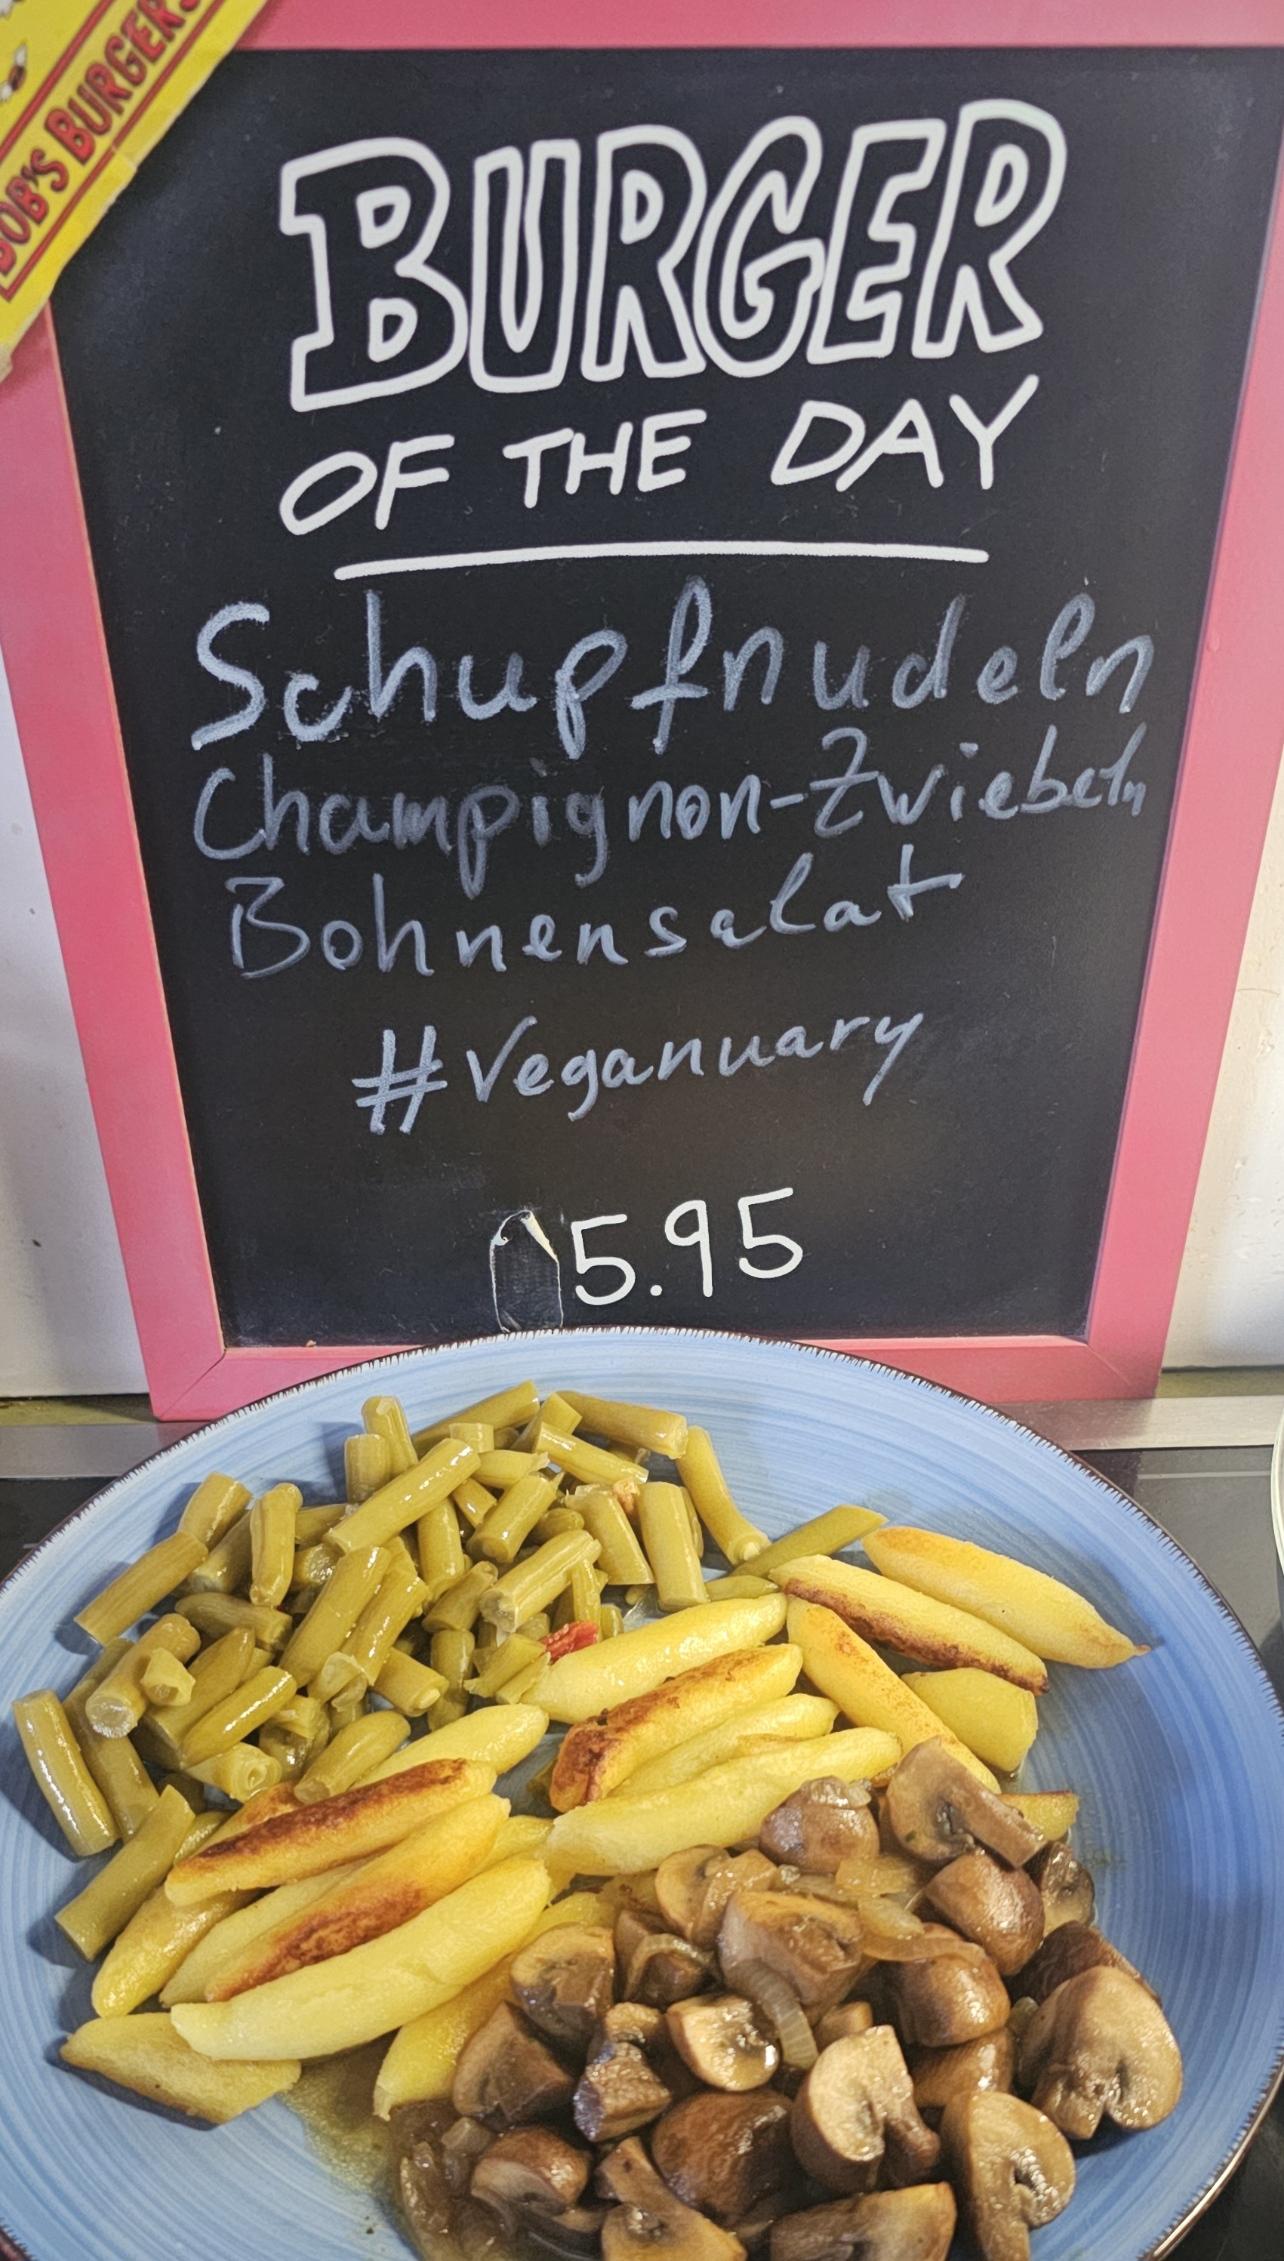 BOB'S BURGERS
BURGER
OF THE DAY
Schupfnudeln
Champignon-Zwiebeln
Bohnensalat
#Veganuary
5.95